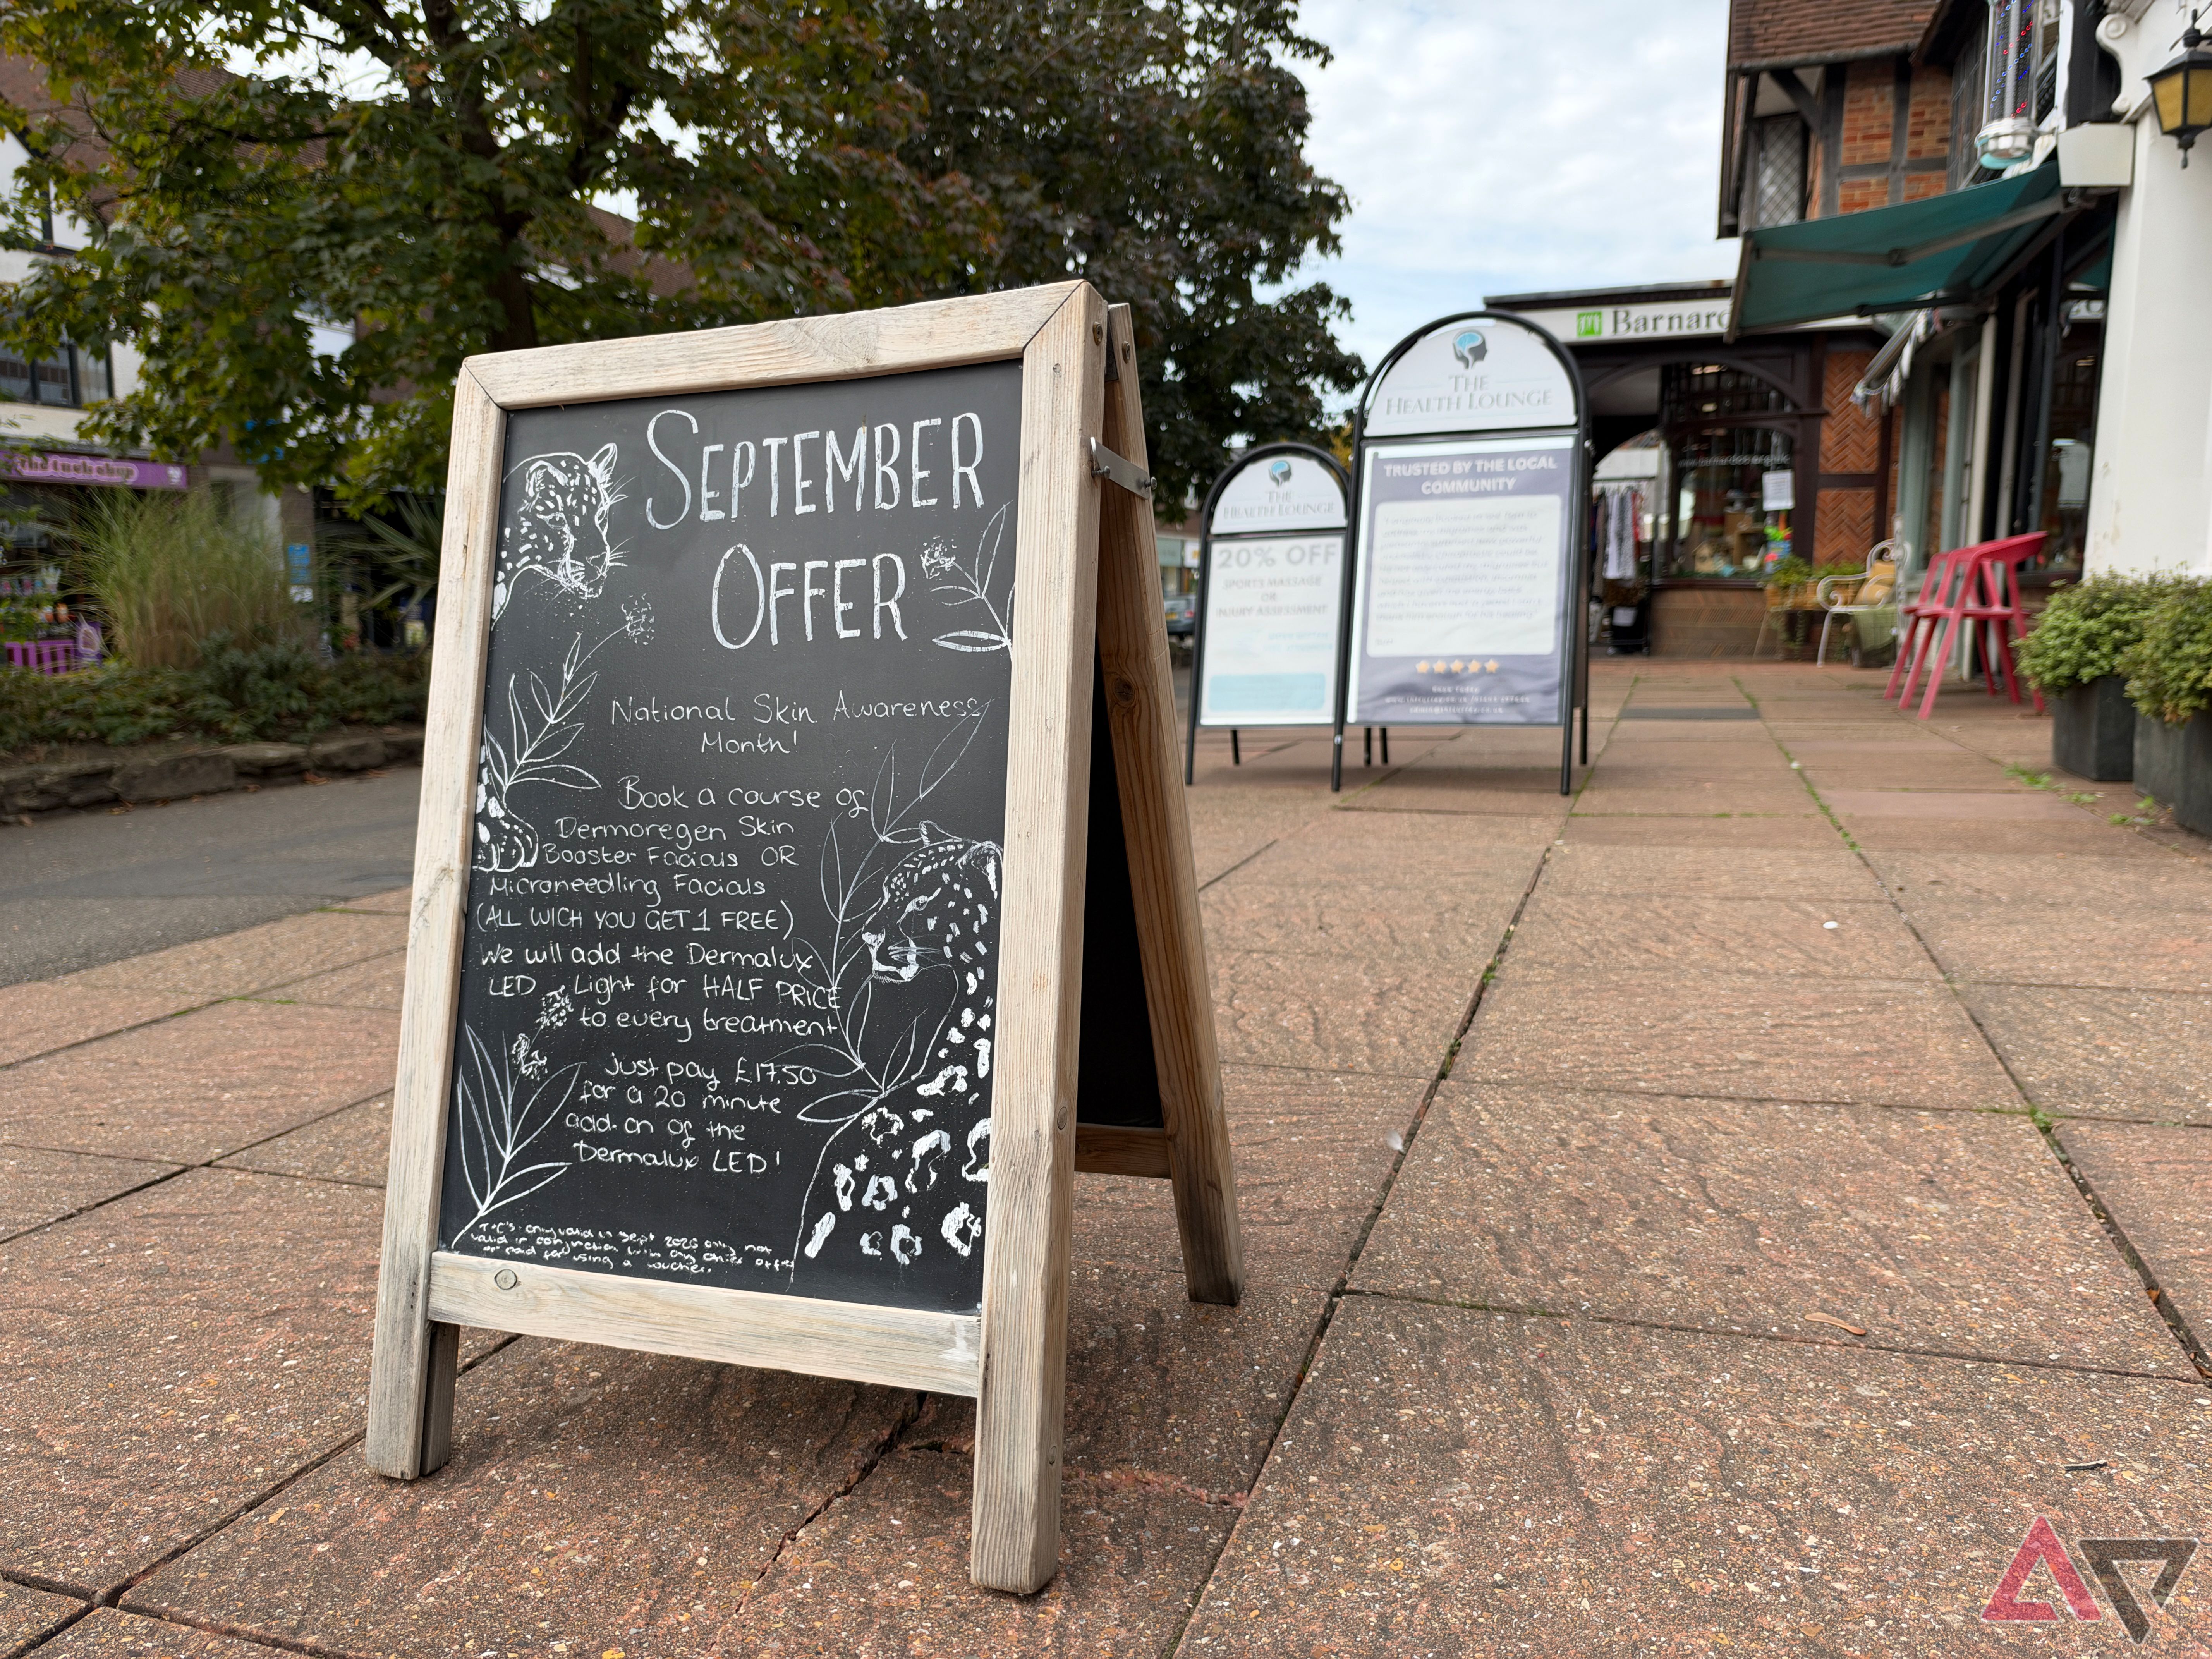 SEPTEMBER
OFFER
National Skin Awareness
Month!
Book a course of
Dermoregen Skin
Booster Facials OR
Microneedling Facials
(ALL WICH YOU GET 1 FREE)
We will add the Dermalux
LED Light for HALF PRICE
to every treatment
Just pay £17.50
for a 20 minute
add-on of the
Dermalux LED!
T+C's: only valid in Sept only, not
valid in conjunction with any other offer
or paid for using a voucher.
THE
HEALTH LOUNGE
20% OFF
SPORTS MASSAGE
OR
INJURY ASSESSMENT
THE
HEALTH LOUNGE
TRUSTED BY THE LOCAL
COMMUNITY
Barnard
the tuck shop